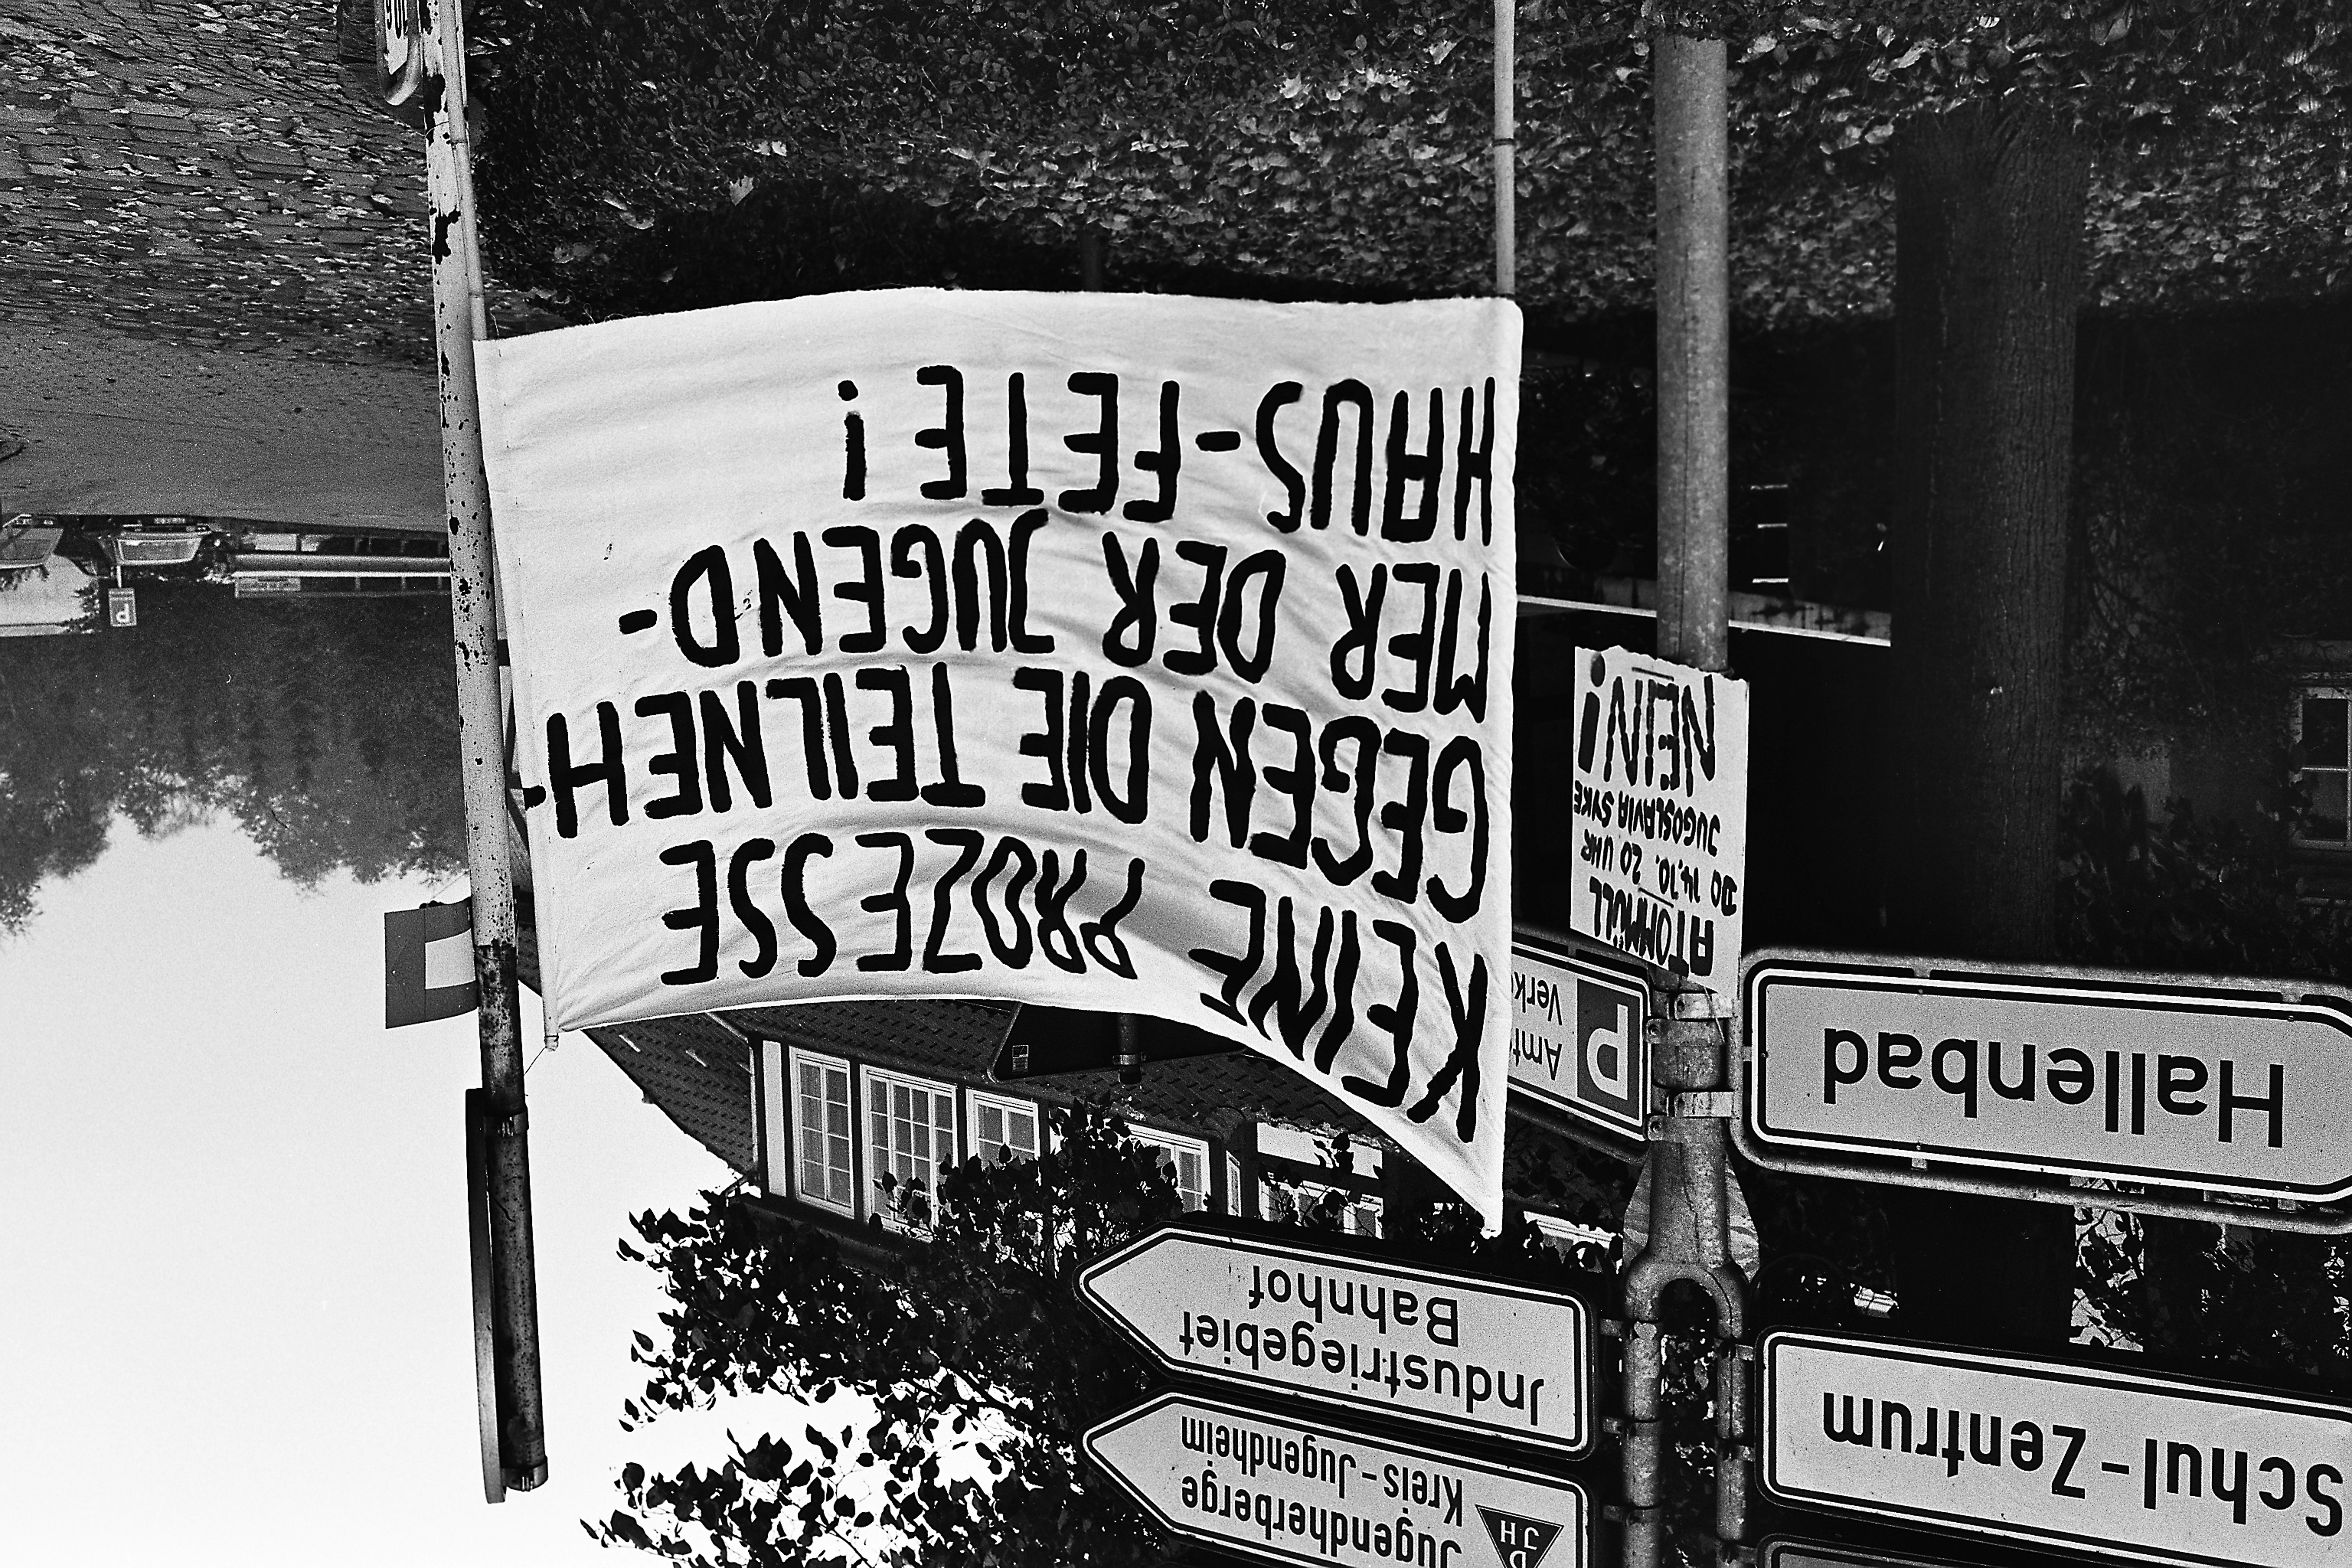 DJH
Jugendherberge
Kreis-Jugendheim
Schul-Zentrum
Jndustriegebiet
Bahnhof
P
Hallenbad
KEINE PROZESSE
GEGEN DIE TEILNEH-
MER DER JUGEND-
HAUS-FETE!
ATOMMÜLL
DO 14.10. 20 UHR
JUGOSLAVIA SYKE
NEIN!
P